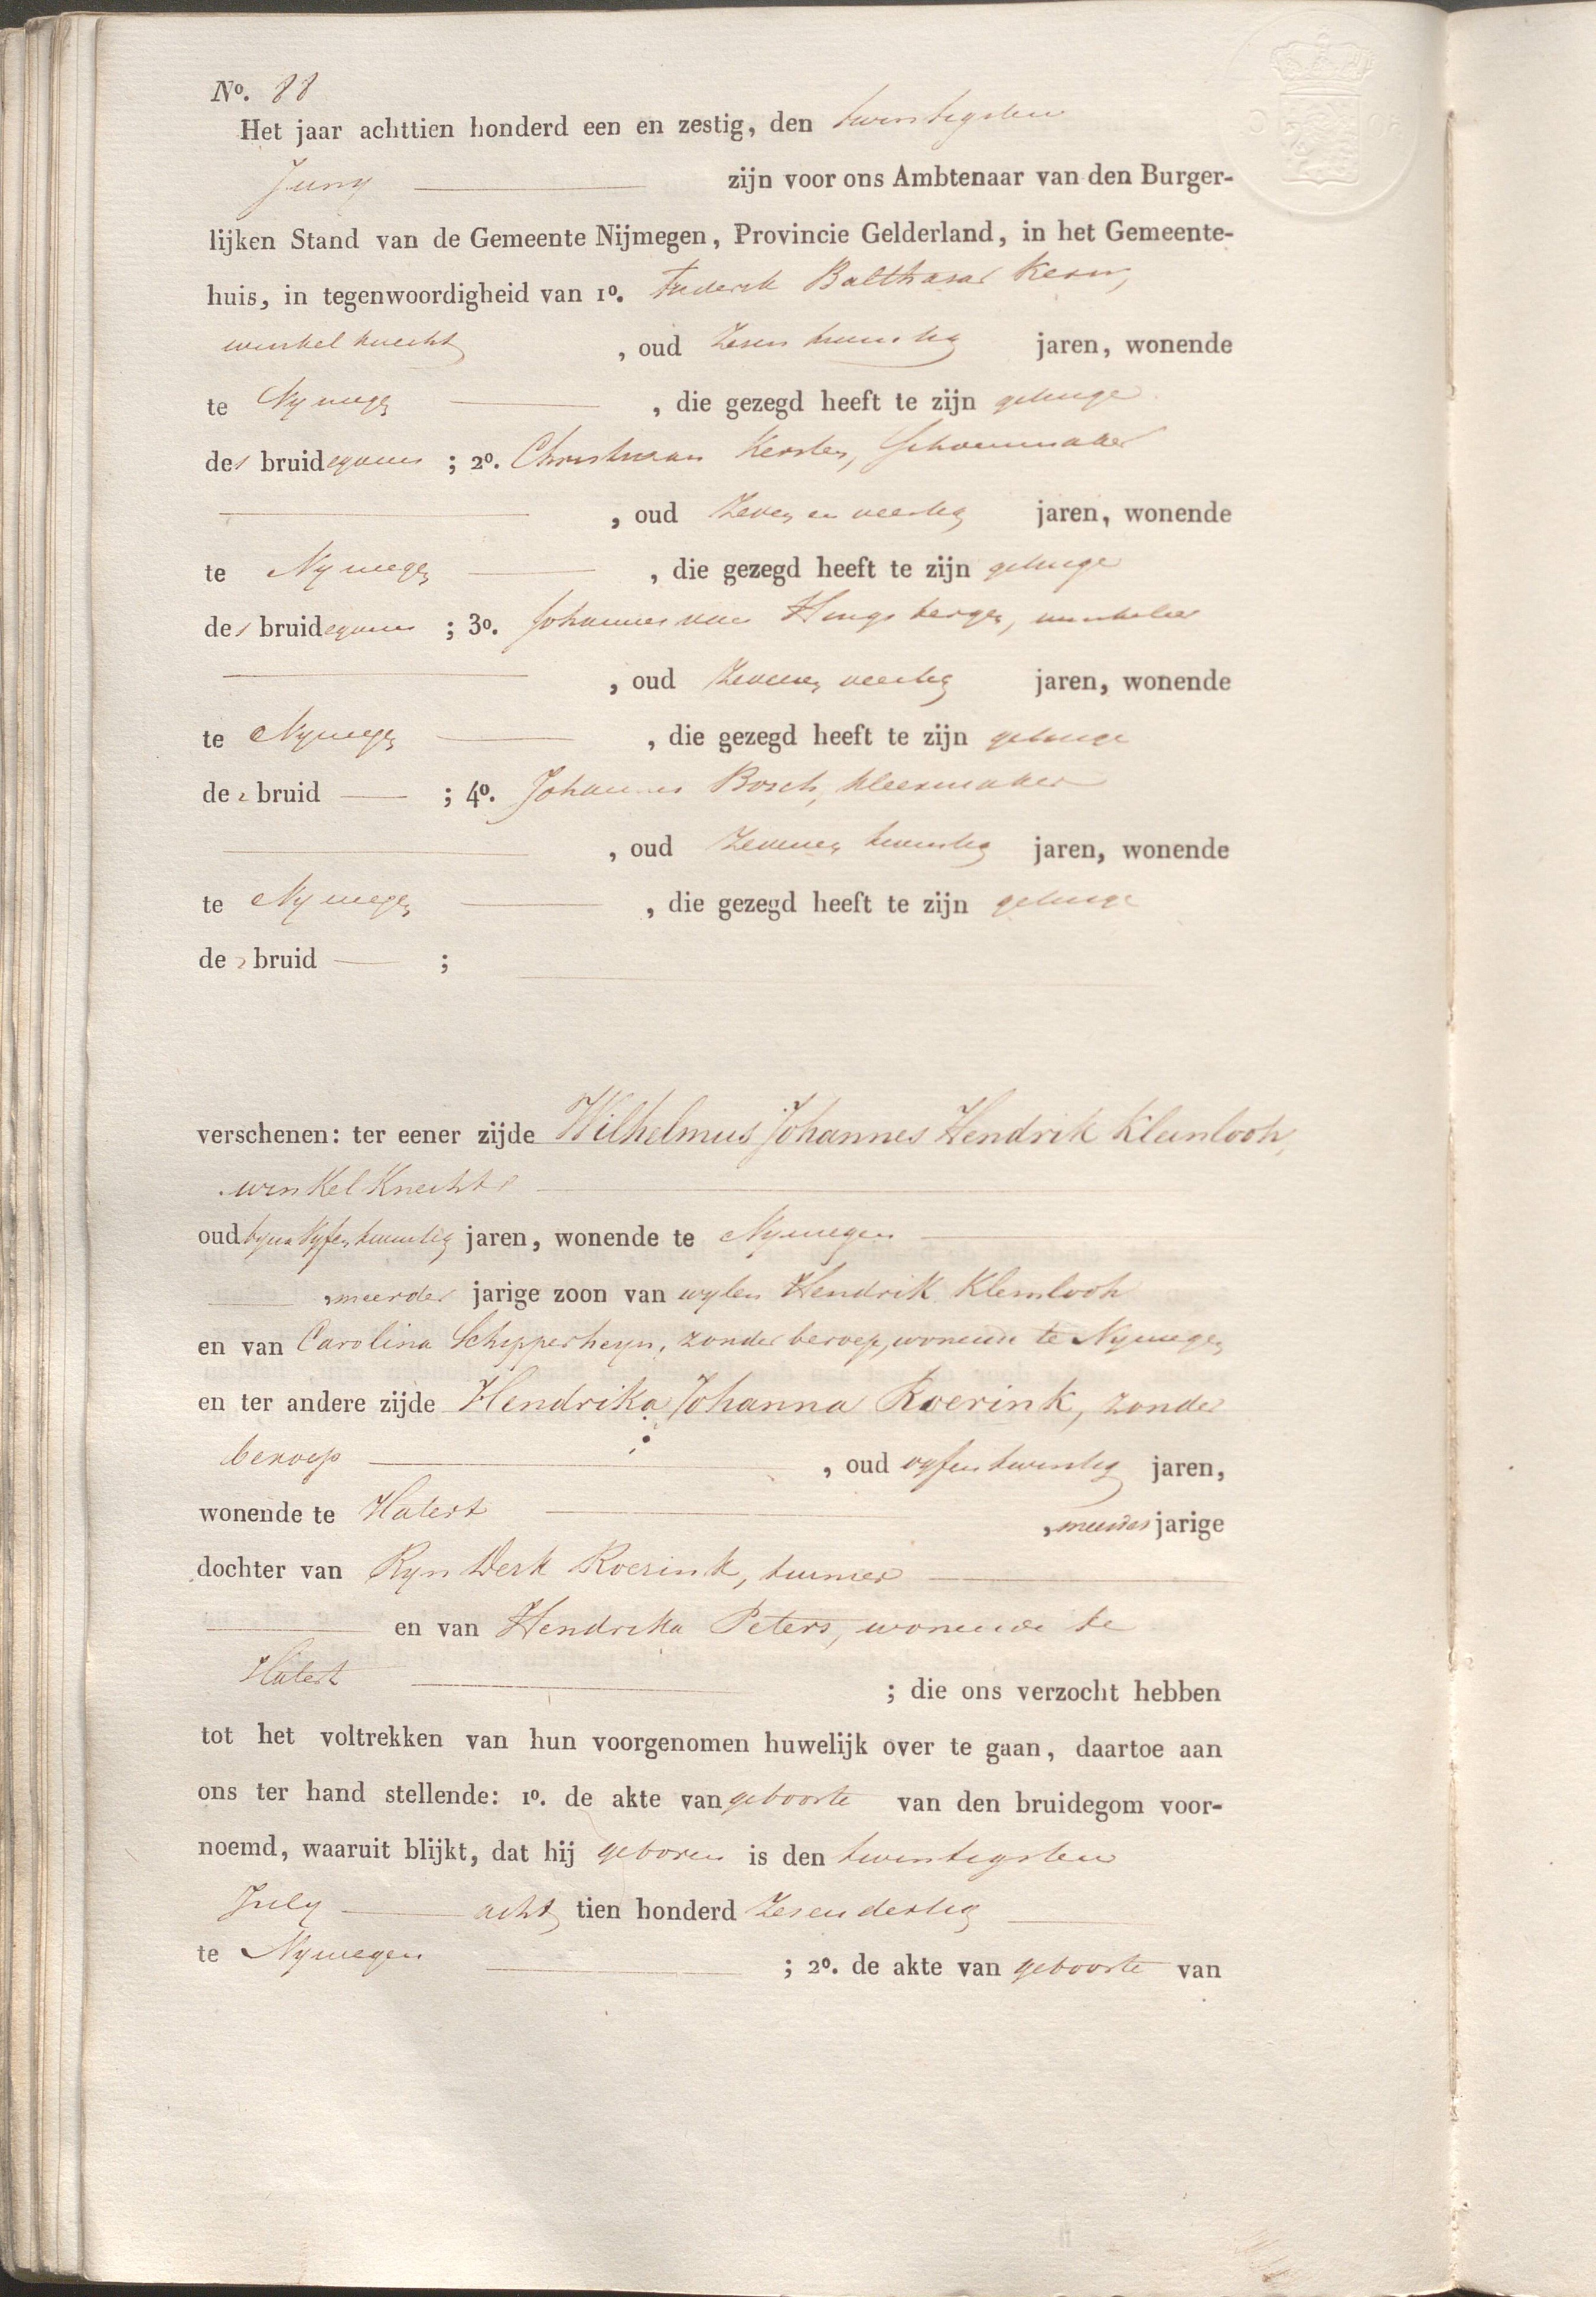 No. 88
Het jaar achttien honderd een en zestig, den twintigsten
Juny zijn voor ons Ambtenaar van den Burger-
lijken Stand van de Gemeente Nijmegen, Provincie Gelderland, in het Gemeente-
huis, in tegenwoordigheid van 1o. Frederik Balthasar
winkelknecht, oud zesen twintig jaren, wonende
te Nymegen, die gezegd heeft te zijn getuige
des bruidegoms; 2o. Christiaan Kersten, Schoenmaker
, oud zeven en veertig jaren, wonende
te Nymegen, die gezegd heeft te zijn getuige
des bruidegoms; 3o. Johannes van, winkelier
, oud zevenen veertig jaren, wonende
te Nymegen, die gezegd heeft te zijn getuige
der bruid; 4o. Johannes Bosch, kleermaker
, oud zevenen twintig jaren, wonende
te Nymegen, die gezegd heeft te zijn getuige
der bruid;
verschenen: ter eener zijde Wilhelmus Johannes Hendrik Kleinlooh,
winkelknecht
oud byna vyfentwintig jaren, wonende te Nymegen
, meerder jarige zoon van wylen Hendrik Kleinlooh
en van Carolina Schipperheyn, zonder beroep, wonende te Nymegen
en ter andere zijde Hendrika Johanna Roerink, zonder
beroep, oud vyfentwintig jaren,
wonende te Hatert, meerderjarige
dochter van Ryn Derk Roerink, tuinier
en van Hendrika Peters, wonende te
Hatert; die ons verzocht hebben
tot het voltrekken van hun voorgenomen huwelijk over te gaan, daartoe aan
ons ter hand stellende: 1o. de akte van geboorte van den bruidegom voor-
noemd, waaruit blijkt, dat hij geboren is den twintigsten
July acht tien honderd zesendertig
te Nymegen; 2o. de akte van geboorte van